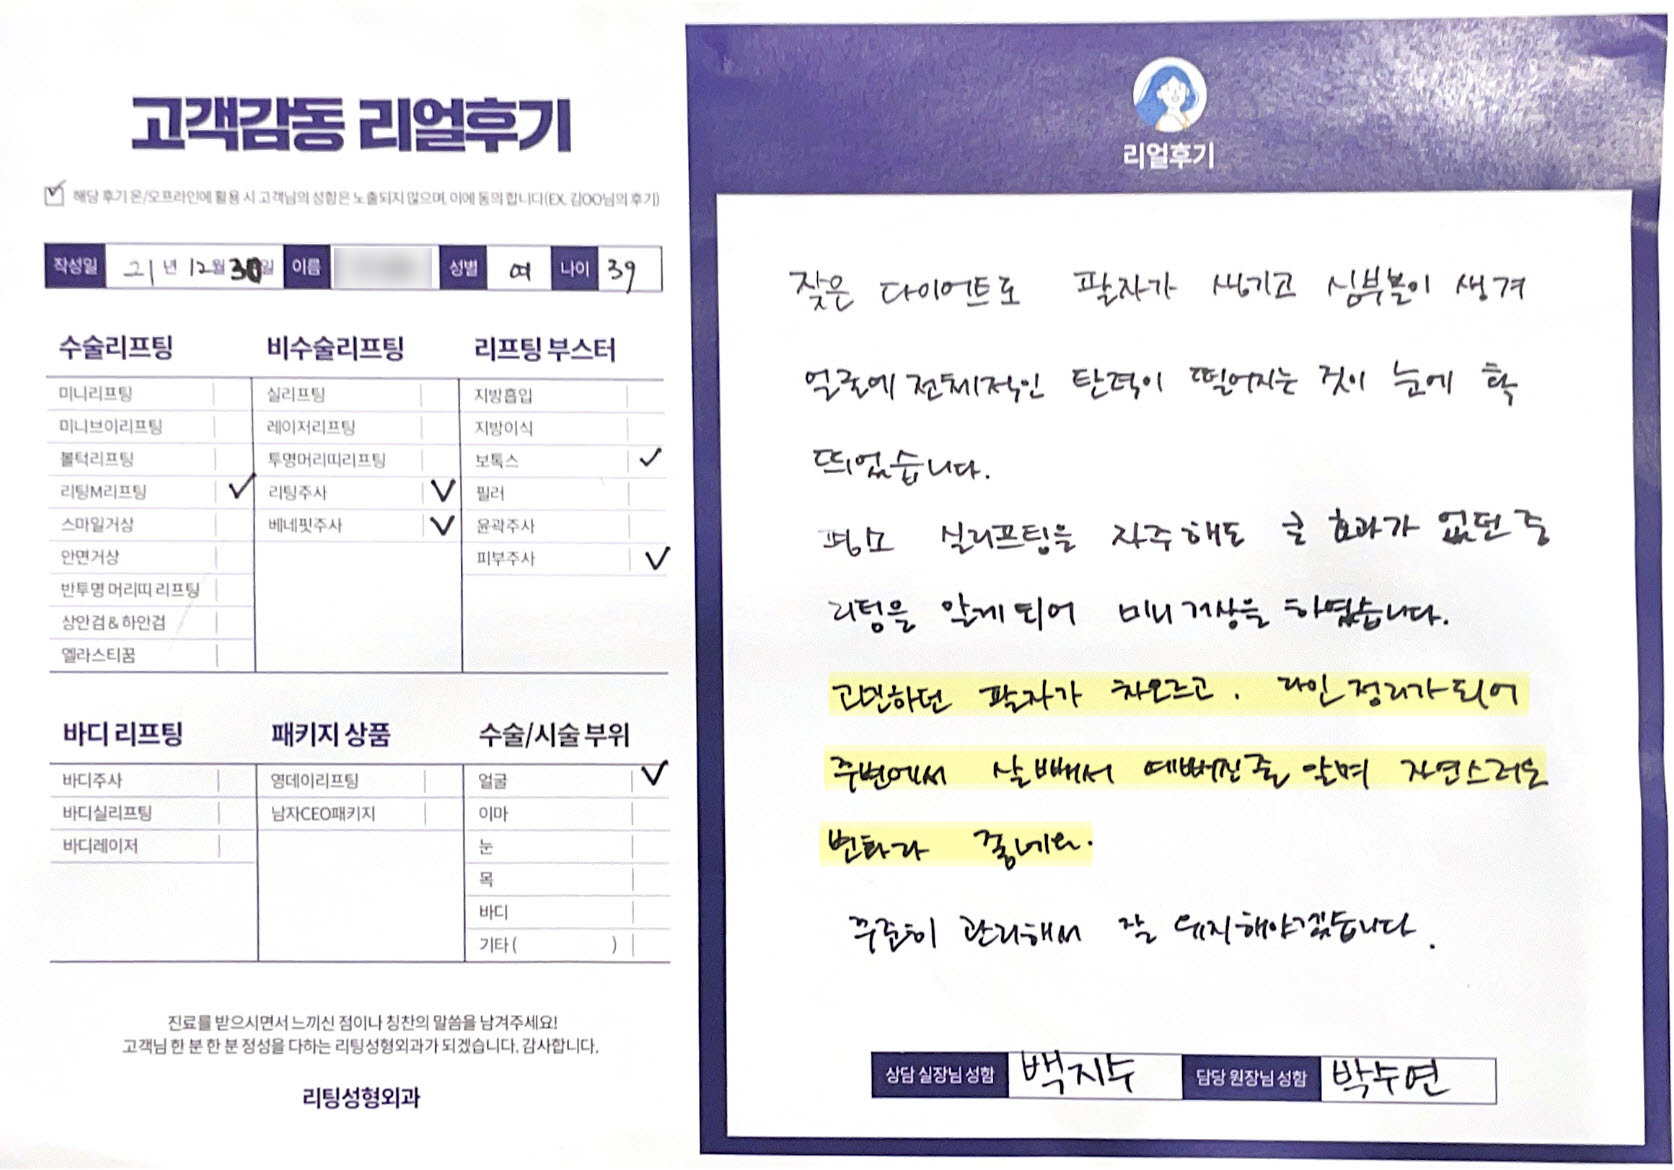 고객감동 리얼후기
✓ 해당 후기 온/오프라인에 활용 시 고객님의 성함은 노출되지 않으며, 이에 동의 합니다(EX. 김OO님의 후기)
작성일 21년 12월 30일 이름 성별 여 나이 39
수술리프팅
미니리프팅
미니브이리프팅
볼턱리프팅
리팅M리프팅 ✓
스마일거상
안면거상
반투명 머리띠 리프팅
상안검 & 하안검
엘라스티꿈
비수술리프팅
실리프팅
레이저리프팅
투명머리띠리프팅
리팅주사 ✓
베네핏주사 ✓
리프팅 부스터
지방흡입
지방이식
보톡스 ✓
필러
윤곽주사
피부주사 ✓
바디 리프팅
바디주사
바디실리프팅
바디레이저
패키지 상품
영데이리프팅
남자CEO패키지
수술/시술 부위
얼굴 ✓
이마
눈
목
바디
기타 ( )
진료를 받으시면서 느끼신 점이나 칭찬의 말씀을 남겨주세요!
고객님 한 분 한 분 정성을 다하는 리팅성형외과가 되겠습니다. 감사합니다.
리팅성형외과
리얼후기
잦은 다이어트로 팔자가 생기고 심부볼이 생겨
얼굴에 전체적인 탄력이 떨어지는 것이 눈에 확
띄었습니다.
평소 실리프팅을 자주해도 큰 효과가 없던 중
리팅을 알게 되어 미니거상을 하였습니다.
고민하던 팔자가 차오르고. 라인정리가 되어
주변에서 살빼서 예뻐진줄 알며 자연스러운
변화가 좋네요.
꾸준히 관리해서 잘 유지해야겠습니다.
상담 실장님 성함 백지수 담당 원장님 성함 박수연